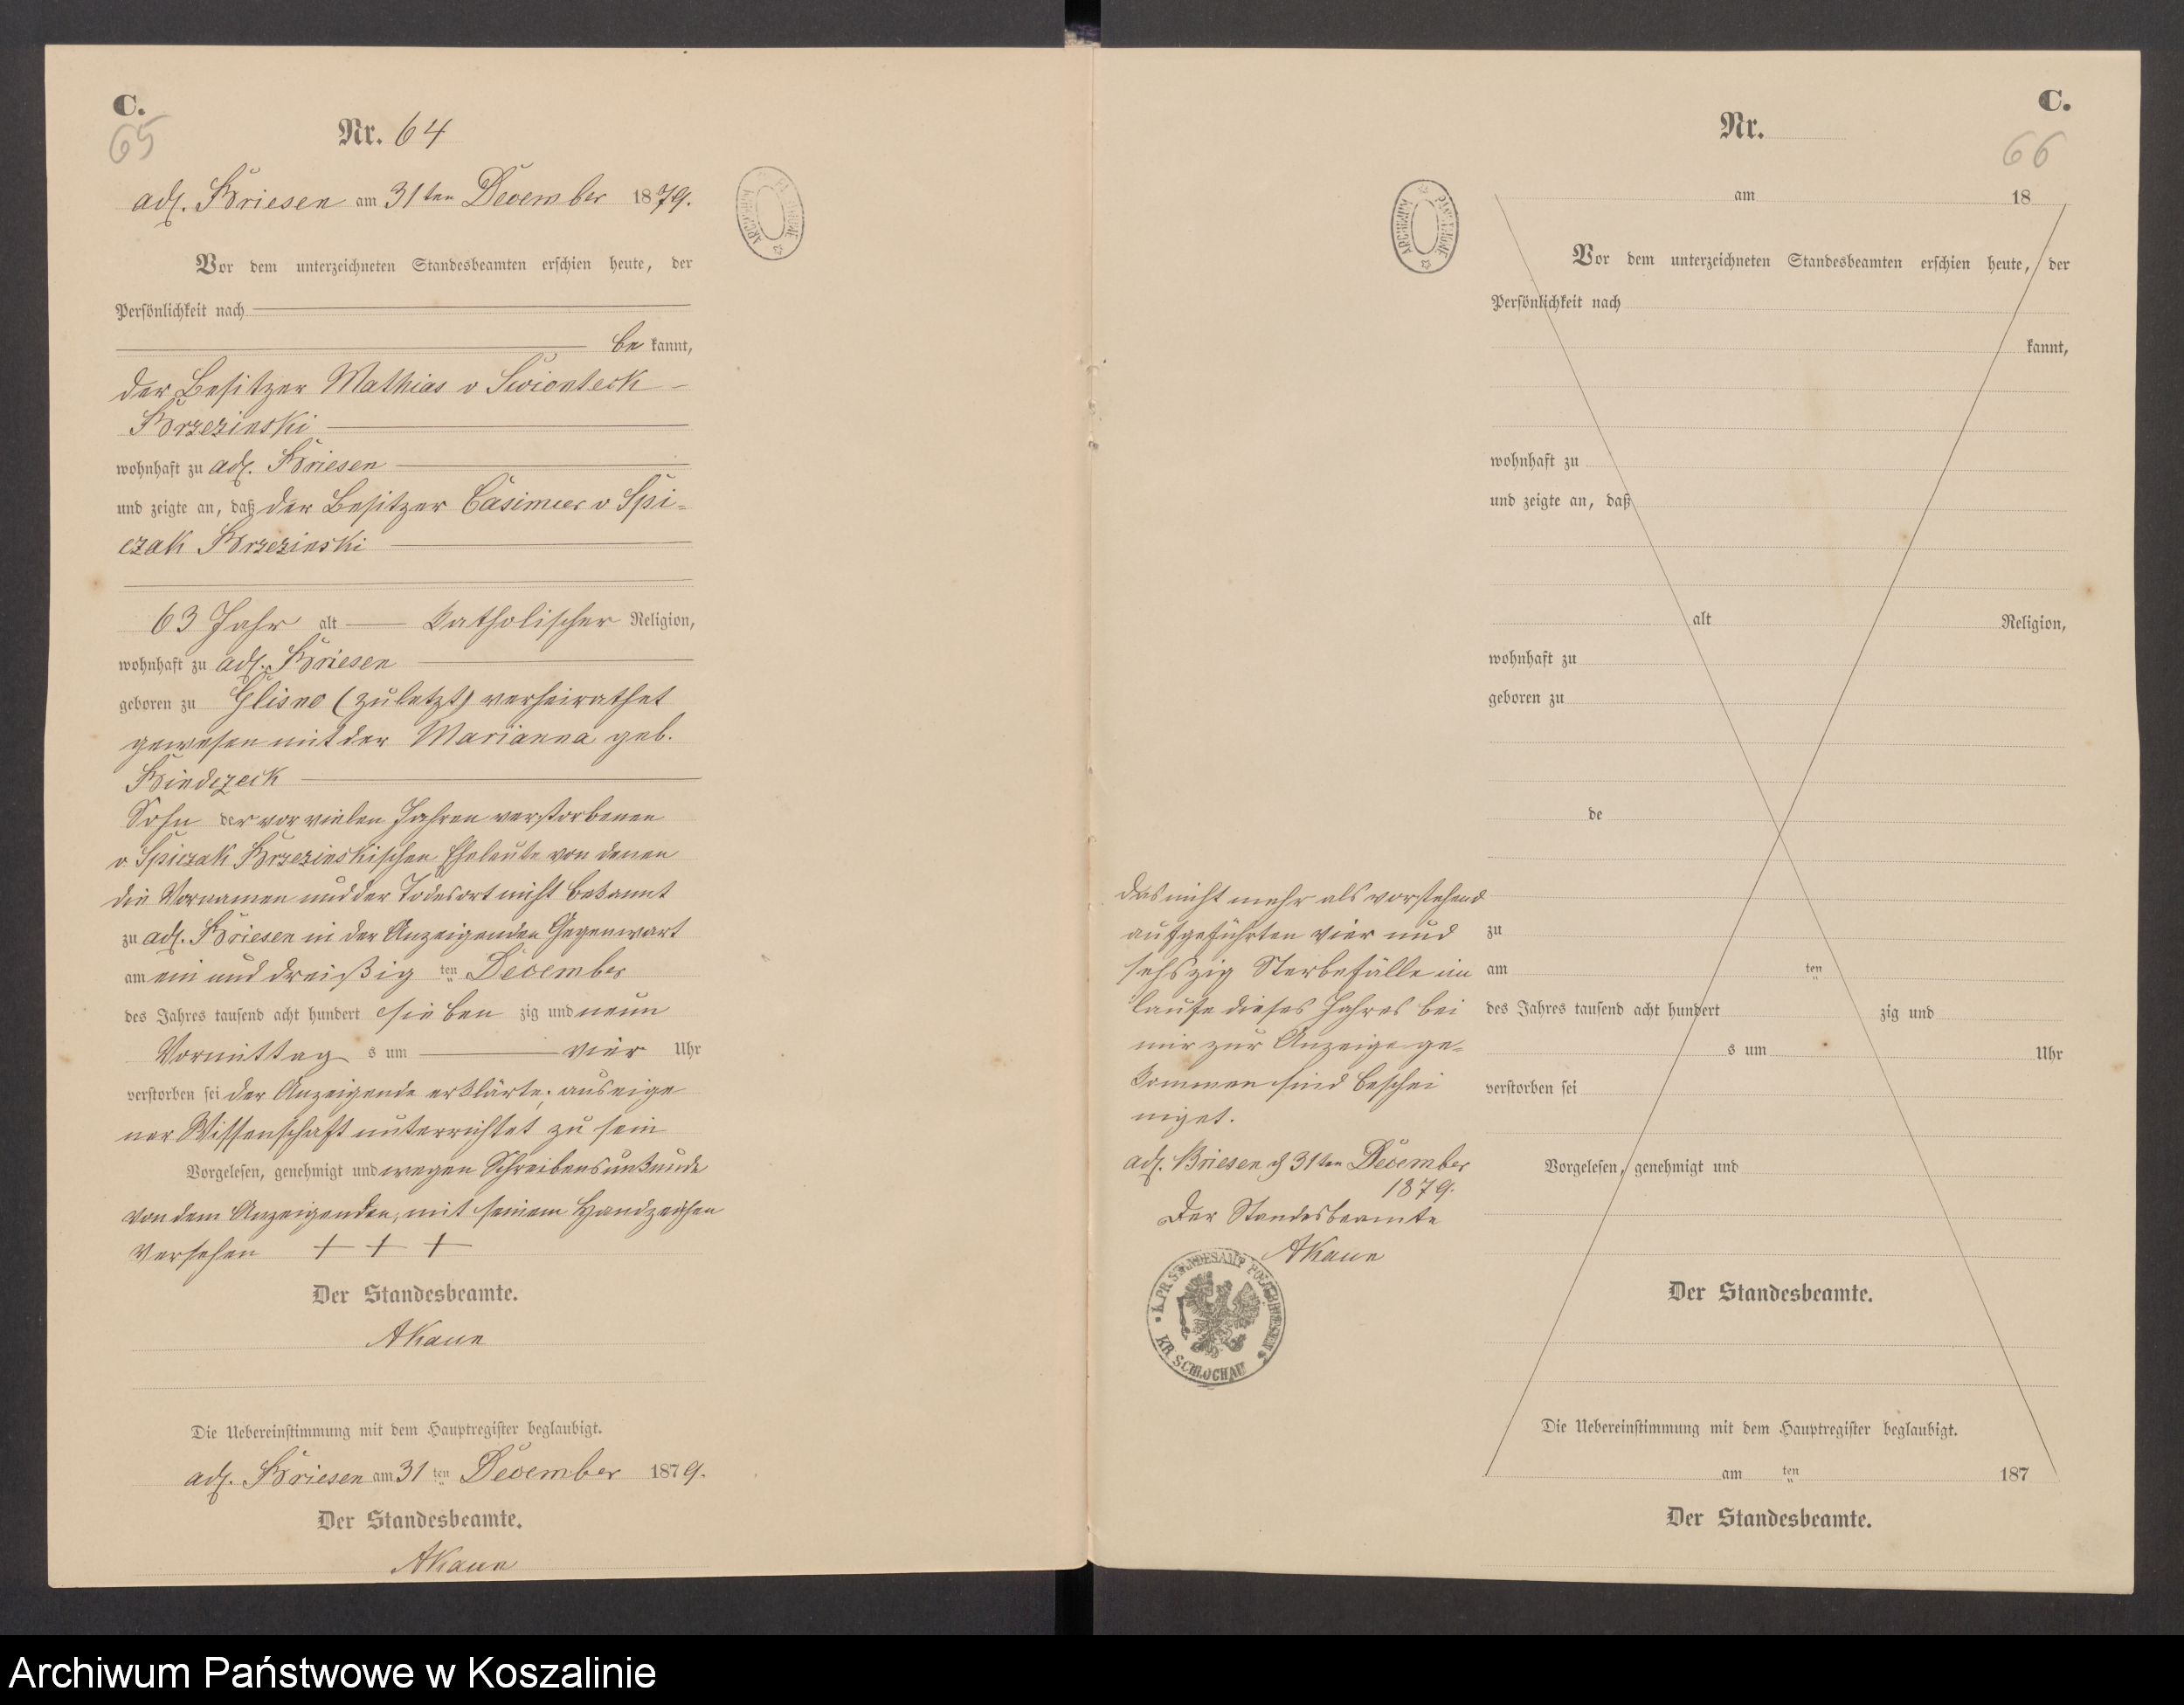 C.
65
Nr. 64
adl. Briesen am 31ten December 1879.
Vor dem unterzeichneten Standesbeamten erschien heute, der
Persönlichkeit nach
be kannt,
der Besitzer Mathias v Swionteck
Brzezinski
wohnhaft zu adl. Briesen
und zeigte an, daß der Besitzer Casimir v Spi=
czak Brzezinski
63 Jahr alt katholischer Religion,
wohnhaft zu adl. Briesen
geboren zu Glisno (zuletzt) verheirathet
gewesen mit der Marianna geb.
Bindezeck
Sohn der vor vielen Jahren verstorbenen
v Spiczak Brzezinskischen Eheleute von denen
die Vornamen und der Todesort nicht bekannt
zu adl. Briesen in der Anzeigenden Gegenwart
am ein und dreißig ten December
des Jahres tausend acht hundert sieben zig und neun
Vormittag s um vier Uhr
verstorben sei der Anzeigende erklärte, aus eige
ner Wissenschaft unterrichtet zu sein
Vorgelesen, genehmigt und wegen Schreibensunkunde
von dem Anzeigenden, mit seinem Handzeichen
versehen + + +
Der Standesbeamte.
AKaun
Die Uebereinstimmung mit dem Hauptregister beglaubigt.
adl. Briesen am 31 ten December 1879.
Der Standesbeamte.
AKaun
ARCHIWUM PAŃSTWOWE
C.
66
Nr.
am 18
ARCHIWUM PAŃSTWOWE
Vor dem unterzeichneten Standesbeamten erschien heute, der
Persönlichkeit nach
kannt,
wohnhaft zu
und zeigte an, daß
alt Religion,
wohnhaft zu
geboren zu
de
zu
am ten
des Jahres tausend acht hundert zig und
s um Uhr
verstorben sei
Vorgelesen, genehmigt und
Der Standesbeamte.
Die Uebereinstimmung mit dem Hauptregister beglaubigt.
am ten 187
Der Standesbeamte.
Das nicht mehr als vorstehend
aufgeführten vier und
sechszig Sterbefälle im
Laufe dieses Jahres bei
mir zur Anzeige ge=
kommen sind beschei
niget.
adl. Briesen d 31ten December
1879.
Der Standesbeamte
AKaun
K. PR. STANDESAMT POLN. BRIESEN
KR. SCHLOCHAU
Archiwum Państwowe w Koszalinie